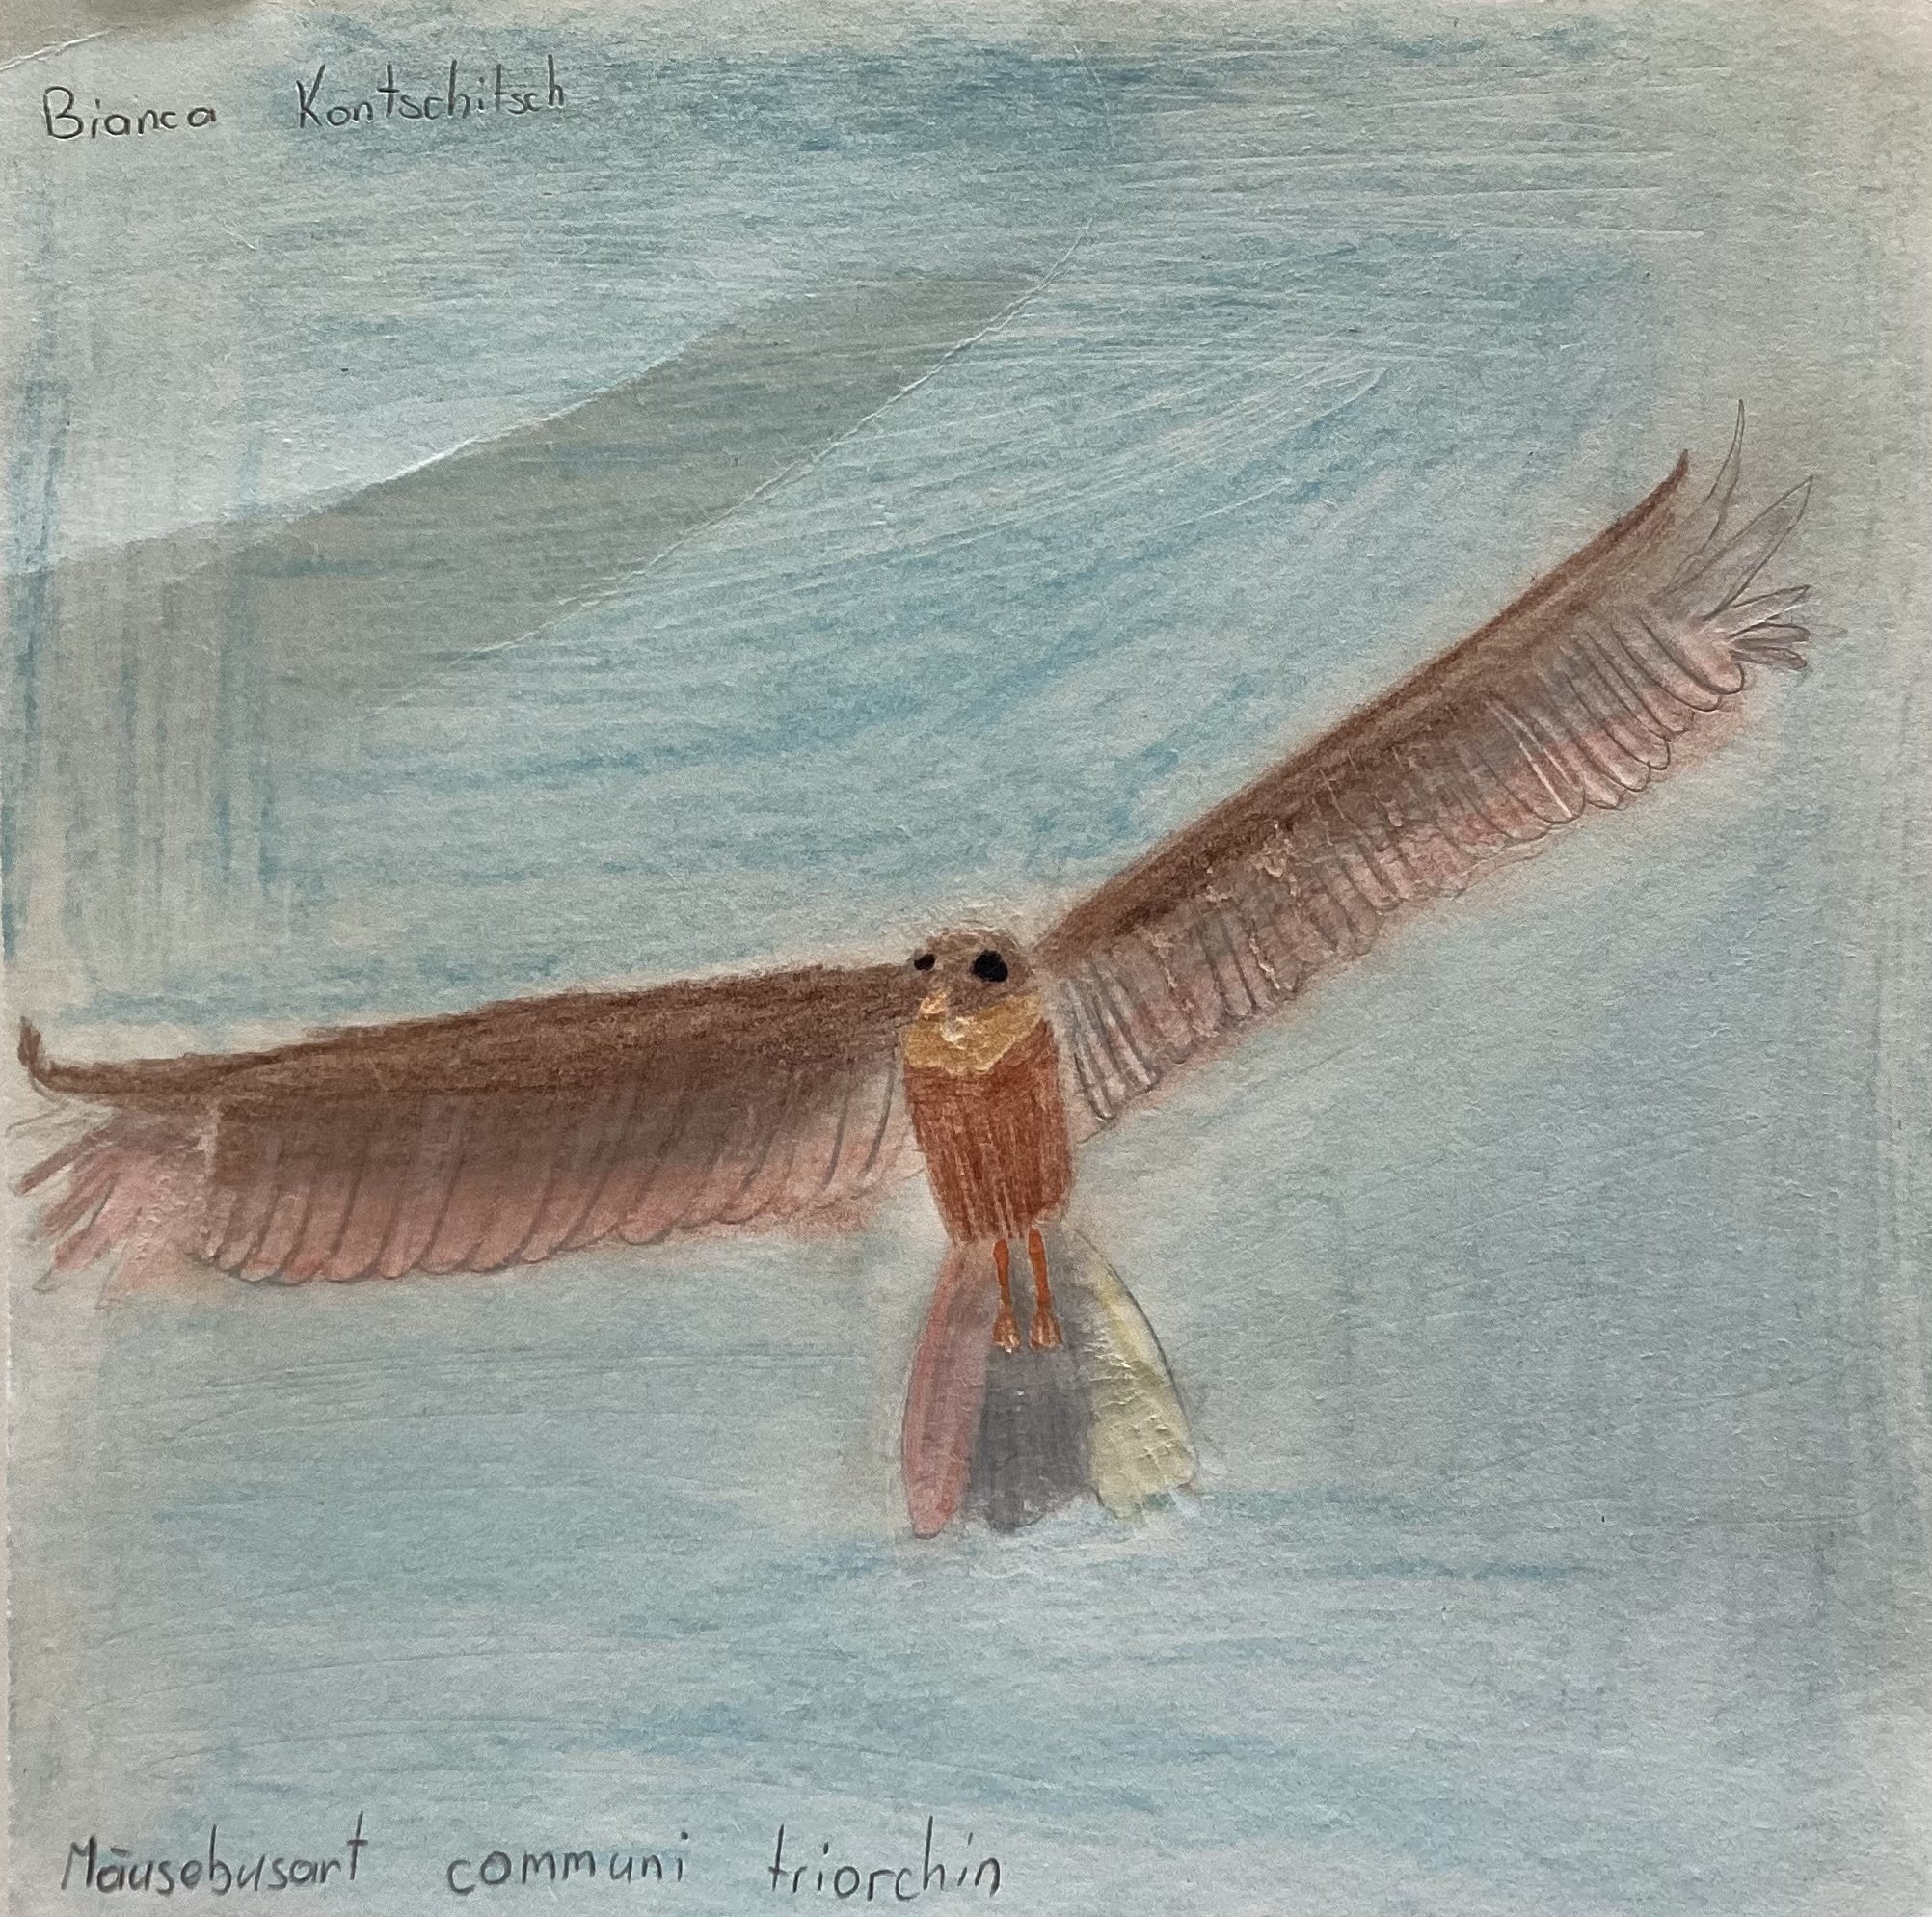 Bianca Kontschitsch
Mäusebusart communi triorchin